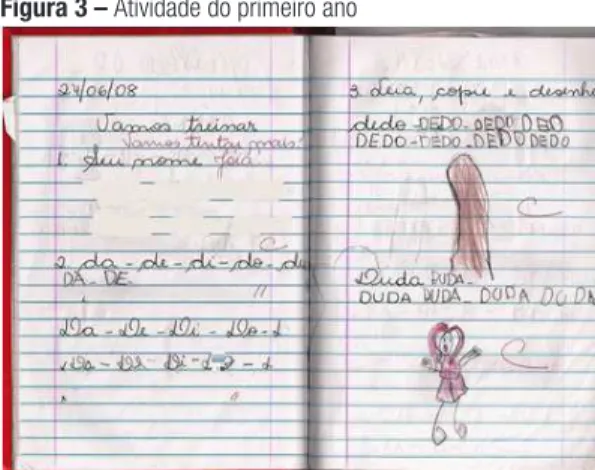 Figura 3 – Atividade do primeiro ano
24/06/08
Vamos treinar
Vamos tentar mais!
1. Seu nome
2. da - de - di - do - du
DA - DE.
Da - De - Di - Do - D
Da - De - Di -
C
3. Leia, copie e desenhe
dedo - DEDO - DEDO DEDO
DEDO - DEDO - DEDO DEDO
C
Duda DUDA -
DUDA DUDA - DUDA DUDA
C